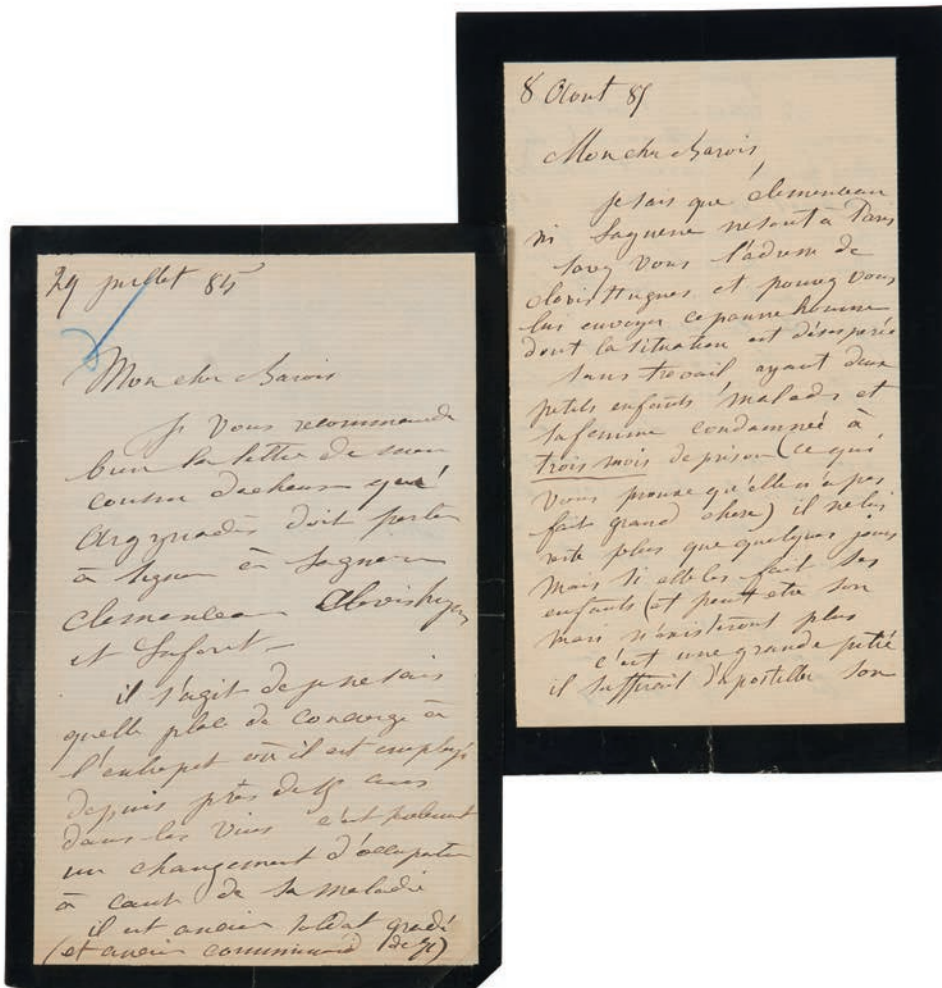 29 juillet 85
Mon cher Barois
Je vous recommande
bien la lettre de mon
cousin dacheux que
Argyriadès doit porter
à signer à Laguerre
Clemenceau Clovishugues
et Laforet –
il s'agit de je ne sais
quelle place de concierge à
l'entrepot où il est employé
depuis près de 15 ans
dans les vins c'est seulement
un changement d'occupation
à cause de sa maladie
il est ancien soldat gradé
(et ancien communié de 71)
8 Aout 85
Mon cher Barois,
je sais que Clemenceau
ni Laguerre ne sont à Paris
savez vous l'adresse de
Clovis Hugues et pouvez vous
lui envoyer ce pauvre homme
dont la situation est désespérée
sans travail ayant deux
petits enfants malades et
sa femme condamnée à
trois mois de prison (ce qui
vous prouve qu'elle n'a pas
fait grand chose) il ne lui
reste plus que quelques jours
mais si elle les fait ses
enfants (et peut etre son
mari n'existeront plus
c'est une grande pitié
il suffirait d'apostiller son